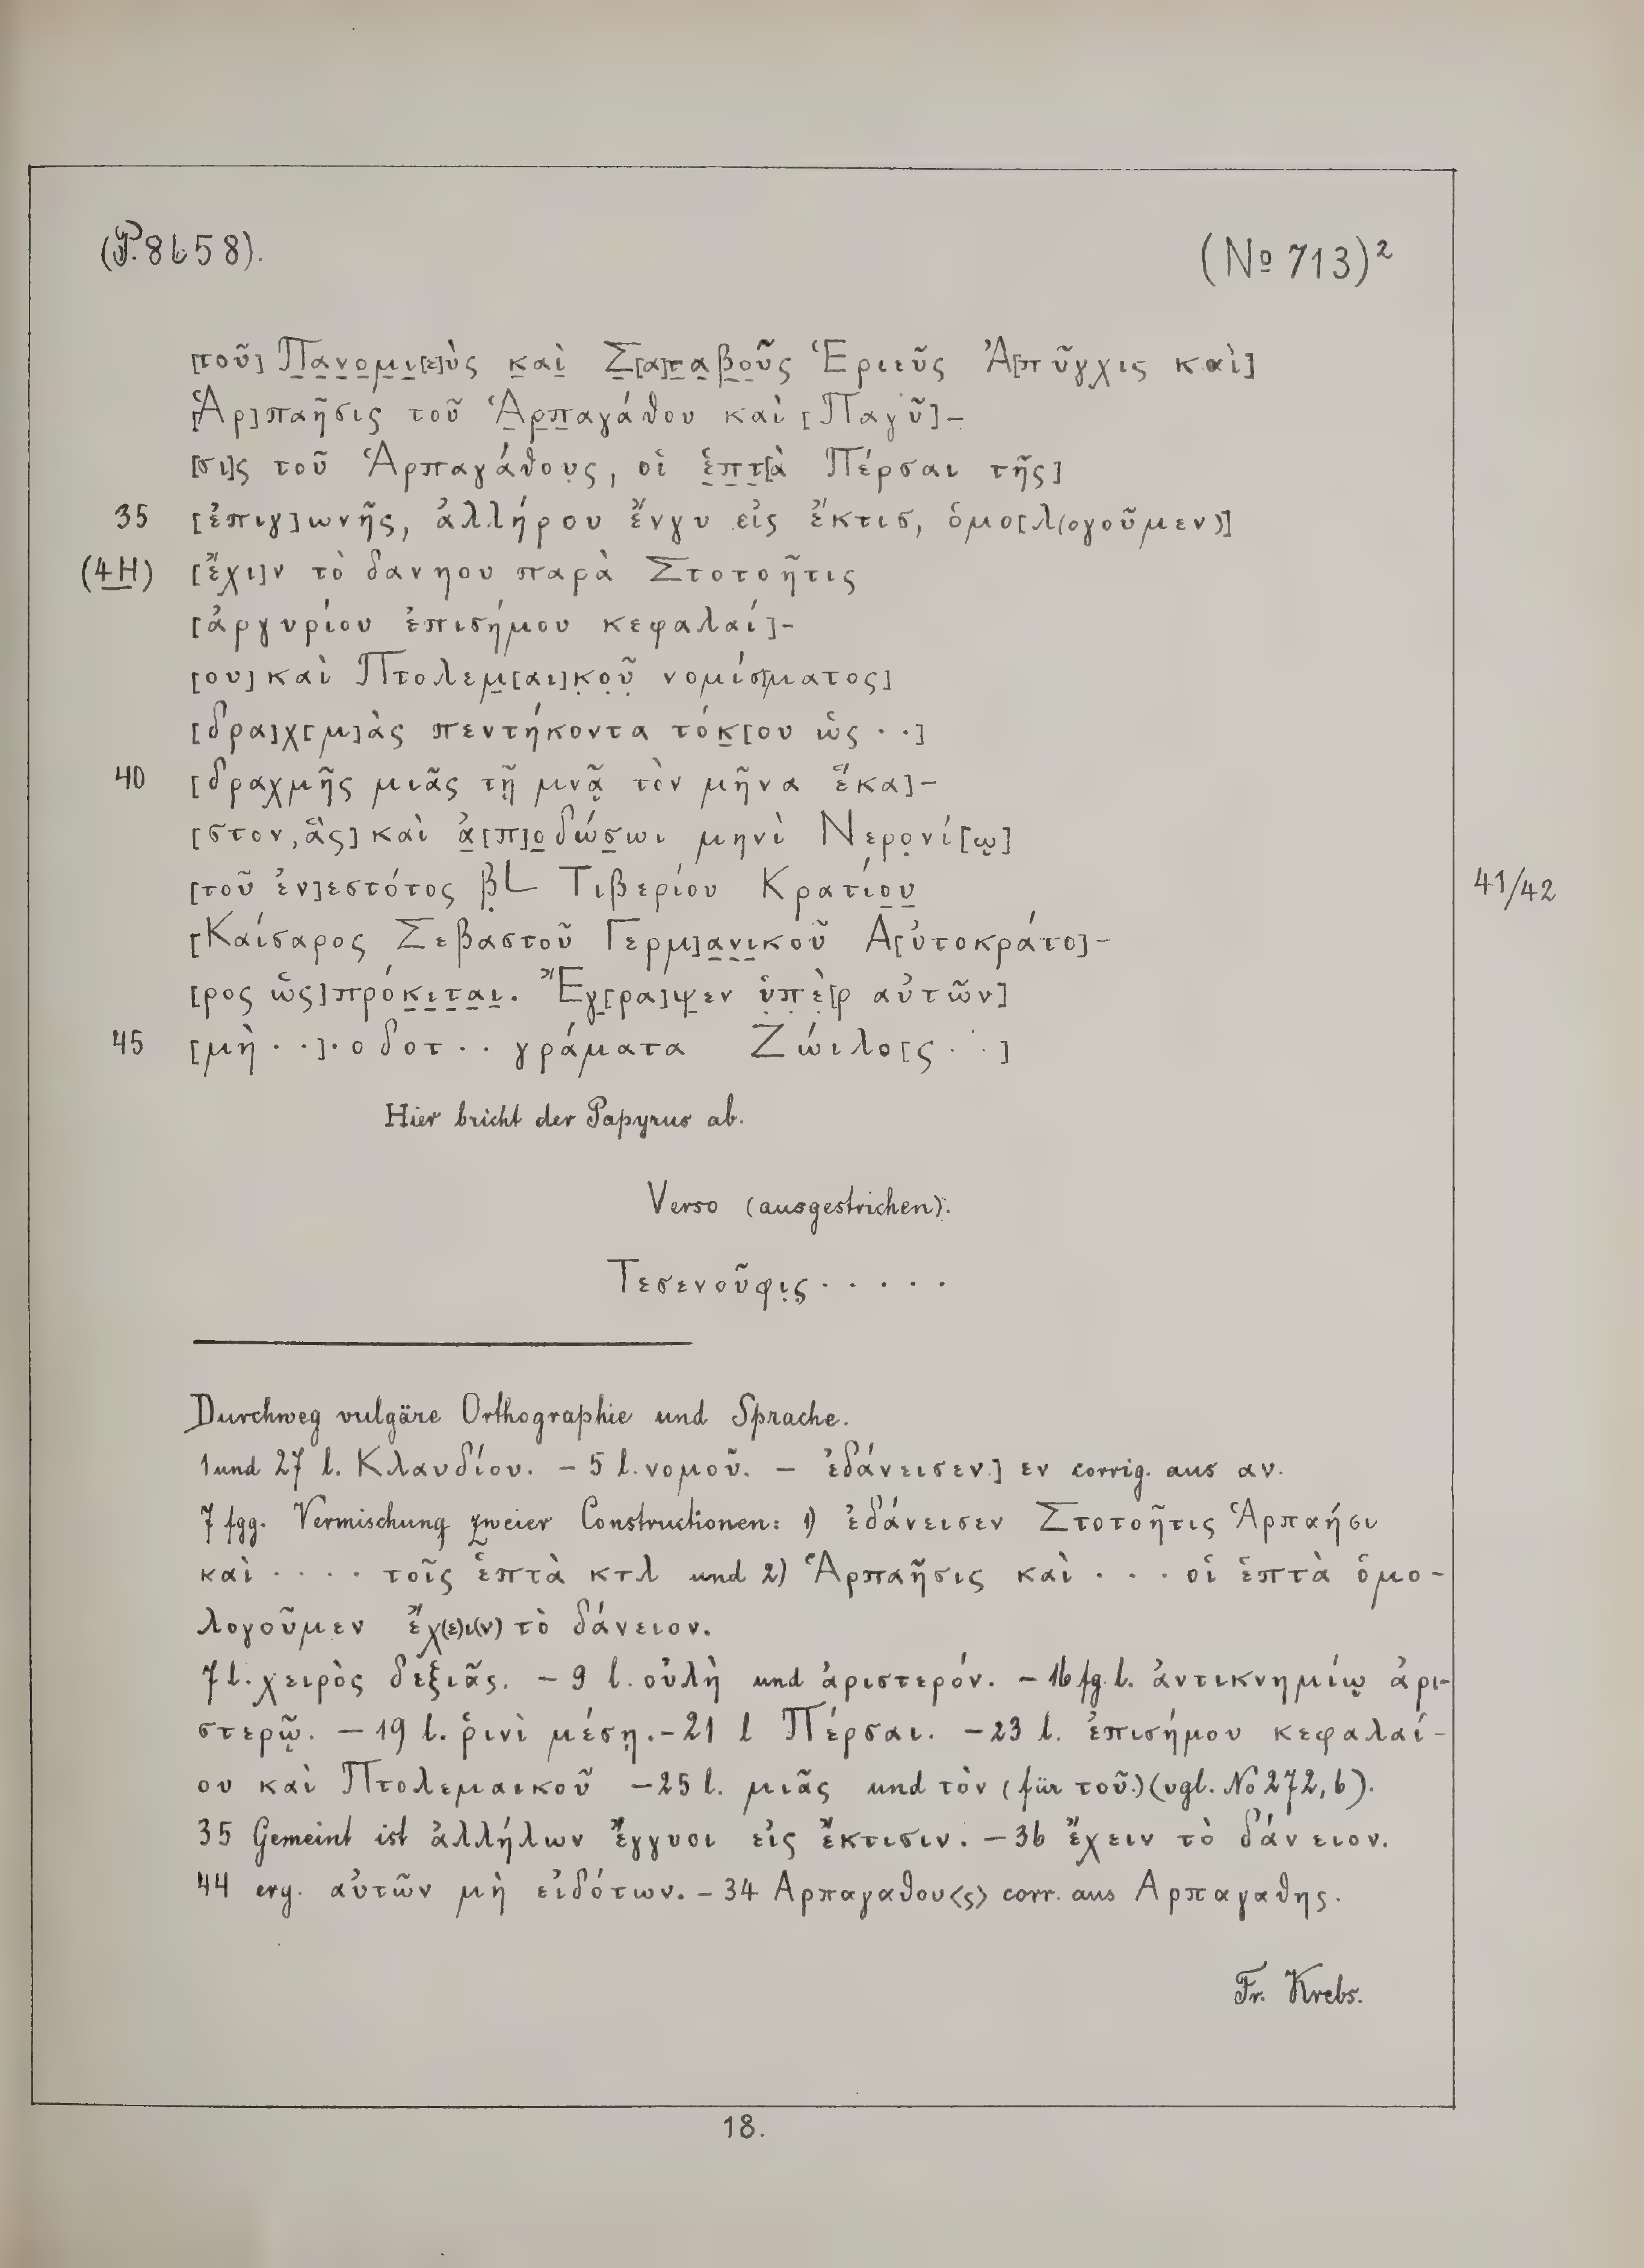 (P. 8658).
(№ 713)²
[τοῦ] Π̣α̣ν̣ο̣μ̣ι̣[ε]ὺς κ̣α̣ὶ̣ Σ̣[α]τ̣α̣β̣ο̣ῦς Ἑριεῦς Ἀ[πῦγχις καὶ]
[Ἁρ]παῆσις τοῦ Ἁ̣ρ̣π̣αγάθου καὶ [Παγῦ]-
[σι]ς τοῦ Ἁρπαγάθου̣ς, οἱ ἑ̣π̣τ̣[ὰ Πέρσαι τῆς]
35 [ἐπιγ]ωνῆς, ἀλλήρου ἔνγυ εἰς ἔκτισ, ὁμο[λ(ογοῦμεν)]
(4 H) [ἔχι]ν τὸ δανηου παρὰ Στοτοῆτις
[ἀργυρίου ἐπισήμου κεφαλαί]-
[ου] καὶ Πτολεμ̣[αι]κ̣ο̣ῦ̣ νομίσ[ματος]
[δρα]χ[μ]ὰς πεντήκοντα τόκ̣[ου ὡς . .]
40 [δραχμῆς μιᾶς τῇ μνᾷ τὸν μῆνα ἕκα]-
[στον, ἃς] καὶ ἀ̣[π]ο̣δώσ̣ωι μηνὶ Νερο̣νί[ῳ]
[τοῦ ἐν]εστότος β̣L Τιβερίου Κρατίο̣υ̣
41/42
[Καίσαρος Σεβαστοῦ Γερμ]α̣ν̣ι̣κοῦ Α[ὐτοκράτο]-
[ρος ὡς] πρόκ̣ι̣τ̣α̣ι̣. Ἔγ̣[ρα]ψ̣εν ὑ̣π̣ὲ̣[ρ αὐτῶν]
45 [μὴ . .] . οδοτ . . γράματα Ζώιλο[ς . . ]
Hier bricht der Papyrus ab.
Verso (ausgestrichen).
Τεσενοῦφι̣ς̣ . . . . .
Durchweg vulgäre Orthographie und Sprache.
1 und 27 l. Κλαυδίου. – 5 l. νομοῦ. – ἐδάνεισεν] εν corrig. aus αν.
7 fgg. Vermischung zweier Constructionen: 1) ἐδάνεισεν Στοτοῆτις Ἁρπαήσι
καὶ . . . . τοῖς ἑπτὰ κτλ und 2) Ἁρπαῆσις καὶ . . . οἱ ἑπτὰ ὁμο-
λογοῦμεν ἔχ(ε)ι(ν) τὸ δάνειον.
7 l. χειρὸς δεξιᾶς. – 9 l. οὐλὴ und ἀριστερόν. – 16 fg. l. ἀντικνημίῳ ἀρι-
στερῷ. – 19 l. ῥινὶ μέσῃ. – 21 l Πέρσαι. – 23 l. ἐπισήμου κεφαλαί-
ου καὶ Πτολεμαικοῦ – 25 l. μιᾶς und τὸν (für τοῦ.) (vgl. No 272, 6).
35 Gemeint ist ἀλλήλων ἔγγυοι εἰς ἔκτισιν. – 36 ἔχειν τὸ δάνειον.
44 erg. αὐτῶν μὴ εἰδότων. – 34 Αρπαγαθου<ς> corr. aus Αρπαγαθης.
Fr. Krebs.
18.